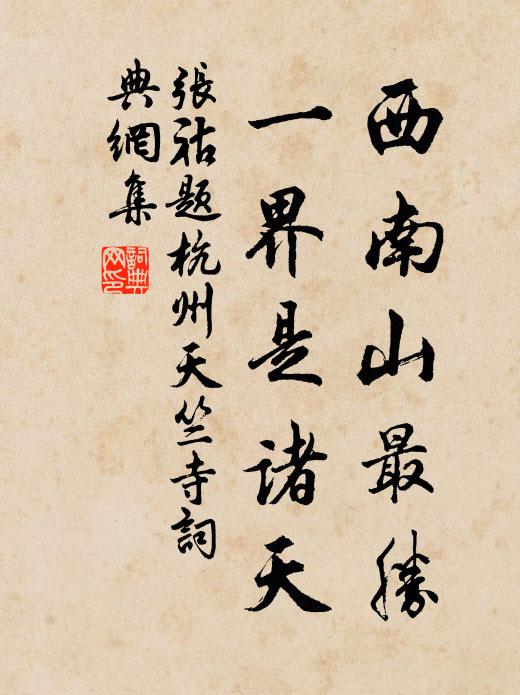 西南山最勝
一界是諸天
張祜題杭州天竺寺詞
典網集
詞典網印